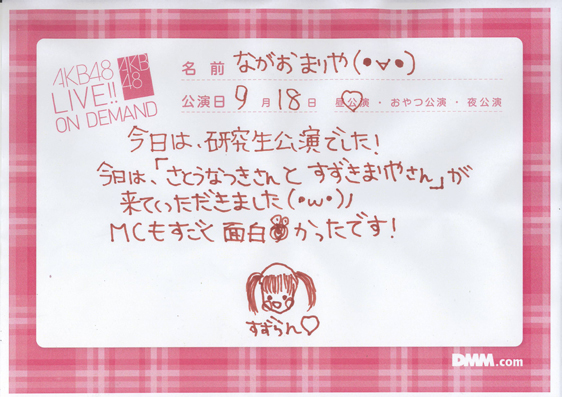 AKB48
LIVE!!
ON DEMAND
AKB
48
名前 ながお まりや(•∀•)
公演日 9月18日 昼公演・おやつ公演・夜公演
今日は、研究生公演でした!
今日は、「さとうなつきさんと すずきまりやさん」が
来ていただきました(•ω•)ノ
MCもすごく 面白かったです!
すずらん♡
DMM.com